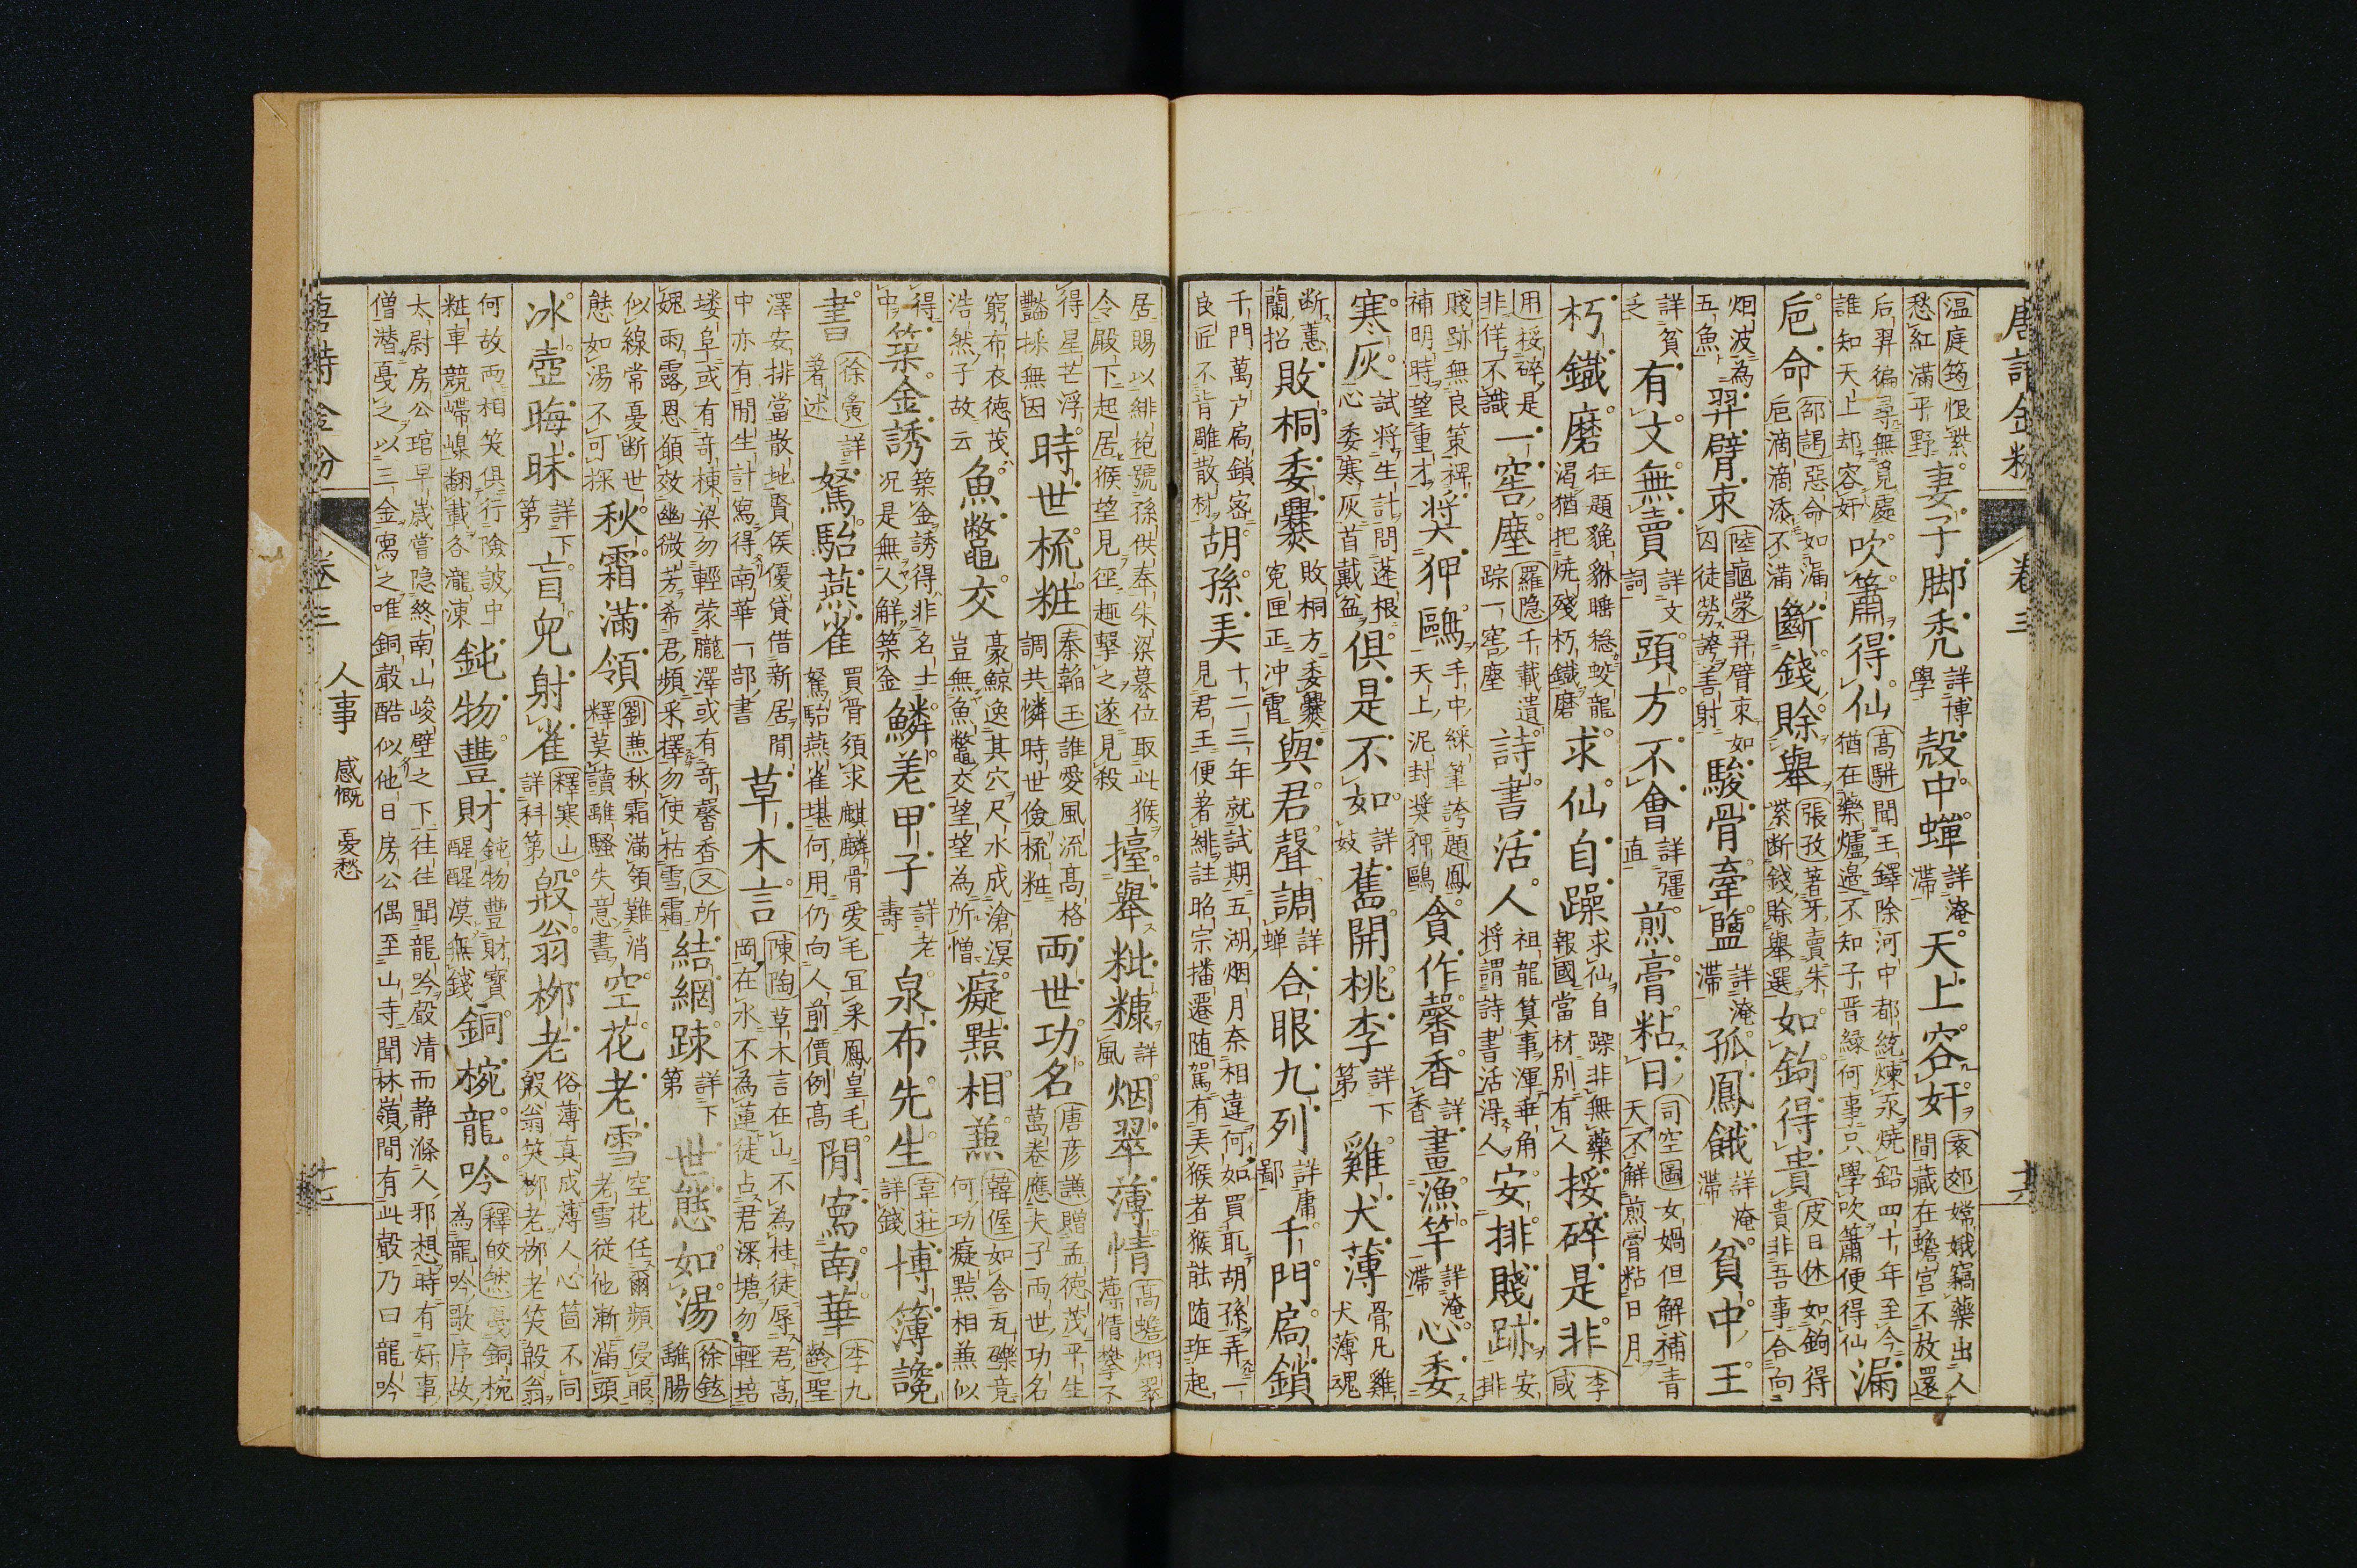 唐詩金粉 卷三 十六
温庭筠恨紫愁紅滿平野 妻子脚禿詳博學 殼中蟬詳淹滯 天上容奸袁郊嫦娥竊藥出人間藏在蟾宮不放還
后羿徧尋無覓處誰知天上却容奸 吹簫得仙高駢聞王鐸除河中都統煉汞燒鉛四十年至今猶在藥爐邊不知子晋緣何事只學吹簫便得仙 漏
巵命邵謁惡命如漏巵滴滴添不滿 斷錢賒舉張孜著牙賣朱紫断錢賒舉選 如鉤得貴皮日休如鉤得貴非吾事合向
烟波為五魚 羿臂束陸龜蒙羿臂束如囚徒勞誇善射 駿骨牽鹽詳淹滯 孤鳳餓詳淹滯 貧中王
詳貧乏 有文無賣詳文詞 頭方不會詳彊直 煎膏粘日司空圖女媧但解補青天不解煎膏粘日月
朽鐵磨狂題貔貅睡稳蛟龍渴猶把燒殘朽鐵磨 求仙自躁求仙自躁非無藥報國當材別有人 挼碎是非李咸
用挼碎是非佯不識 一窖塵羅隐千載遺踪一窖塵 詩書活人祖龍算事渾乖角將謂詩書活得人 安排賤跡安排
賤跡無良策裨補明時望重才 將犬狎鷗手中綵筆誇題鳳天上泥封奨狎鷗 貪作馨香詳香 畫漁竿詳淹滯 心委
寒灰試將生計問蓬根心委寒灰首戴盆 俱是不如詳妓 舊開桃李詳下第 雞犬薄骨凡雞犬薄魂
断蕙蘭招 敗桐委爨敗桐方委爨寃匣正冲霄 與君聲調詳蝉 合眼九列詳庸鄙 千門扃鎖
千門萬户扃鎖密良匠不肯雕散材 胡孫美十二三年就試期五湖烟月奈相違何如買取胡孫弄一見君王便著緋註昭宗播遷随駕有美猴者猴能随班起
居賜以緋袍號孫供奉朱梁慕位取此猴令殿下起居猴望見徑趣擊之遂見殺 擡舉粃糠詳風 烟翠薄情高蟾烟翠薄情攀不
得星芒浮豔採無因 時世梳粧秦韜玉誰愛風流高格調共憐時世儉梳粧 兩世功名唐彦謙贈孟德茂平生萬卷應夫子兩世功名
窮布衣德茂浩然子故云 魚鼈交豪鯨逸其穴尺水成滄溟豈無魚鼈交望望為所憎 癡黠相兼韓偓如含瓦礫竟何功癡黠相兼似
得中 築金誘築金誘得非名士况是無人解築金 鱗差甲子詳老壽 泉布先生韋莊詳錢 博簿讒
書徐夤詳著述 駑駘燕雀買骨須求麒麟骨愛毛冝采鳳皇毛駑駘燕雀堪何用仍向人前價例高 閒寫南華李九齡聖
澤安排當散地賢侯優貸借新居閒中亦有閒生計寫得南華一部書 草木言陳陶草木言在山不為桂徒辱君高岡在水不為蓮徒占君深塘勿輕培
塿阜或有奇棟梁勿輕蒙朧澤或有奇馨香又所媿雨露恩願效幽微芳希君頻采擇勿使枯雪霜 結網疎詳下第 世態如湯徐鉉離腸
似線常憂断世態如湯不可探 秋霜滿領劉兼秋霜滿領難消釋莫讀離騷失意書 空花老雪空花任爾頻侵眼老雪従他漸滿頭
冰壺晦昧詳下第 盲兒射雀釋寒山詳科第 殷翁柳老俗薄真成薄人心箇不同殷翁笑柳老柳老笑殷翁
何故两相笑俱行險詖中粧車競嵽嵲翻載各瀧涷 鈍物豊財鈍物豊財寳醒醒漠無錢 銅椀龍吟釋皎然戞銅椀為龍吟歌序故
太尉房公琯早歳嘗隐終南山峻壁之下往往聞龍吟聲清而静滌人邪想時有好事僧潜戞之以三金寫之唯銅聲酷似他日房公偶至山寺聞林嶺間有此聲乃曰龍吟
唐詩金粉 卷三 人事 感慨 憂愁 十七